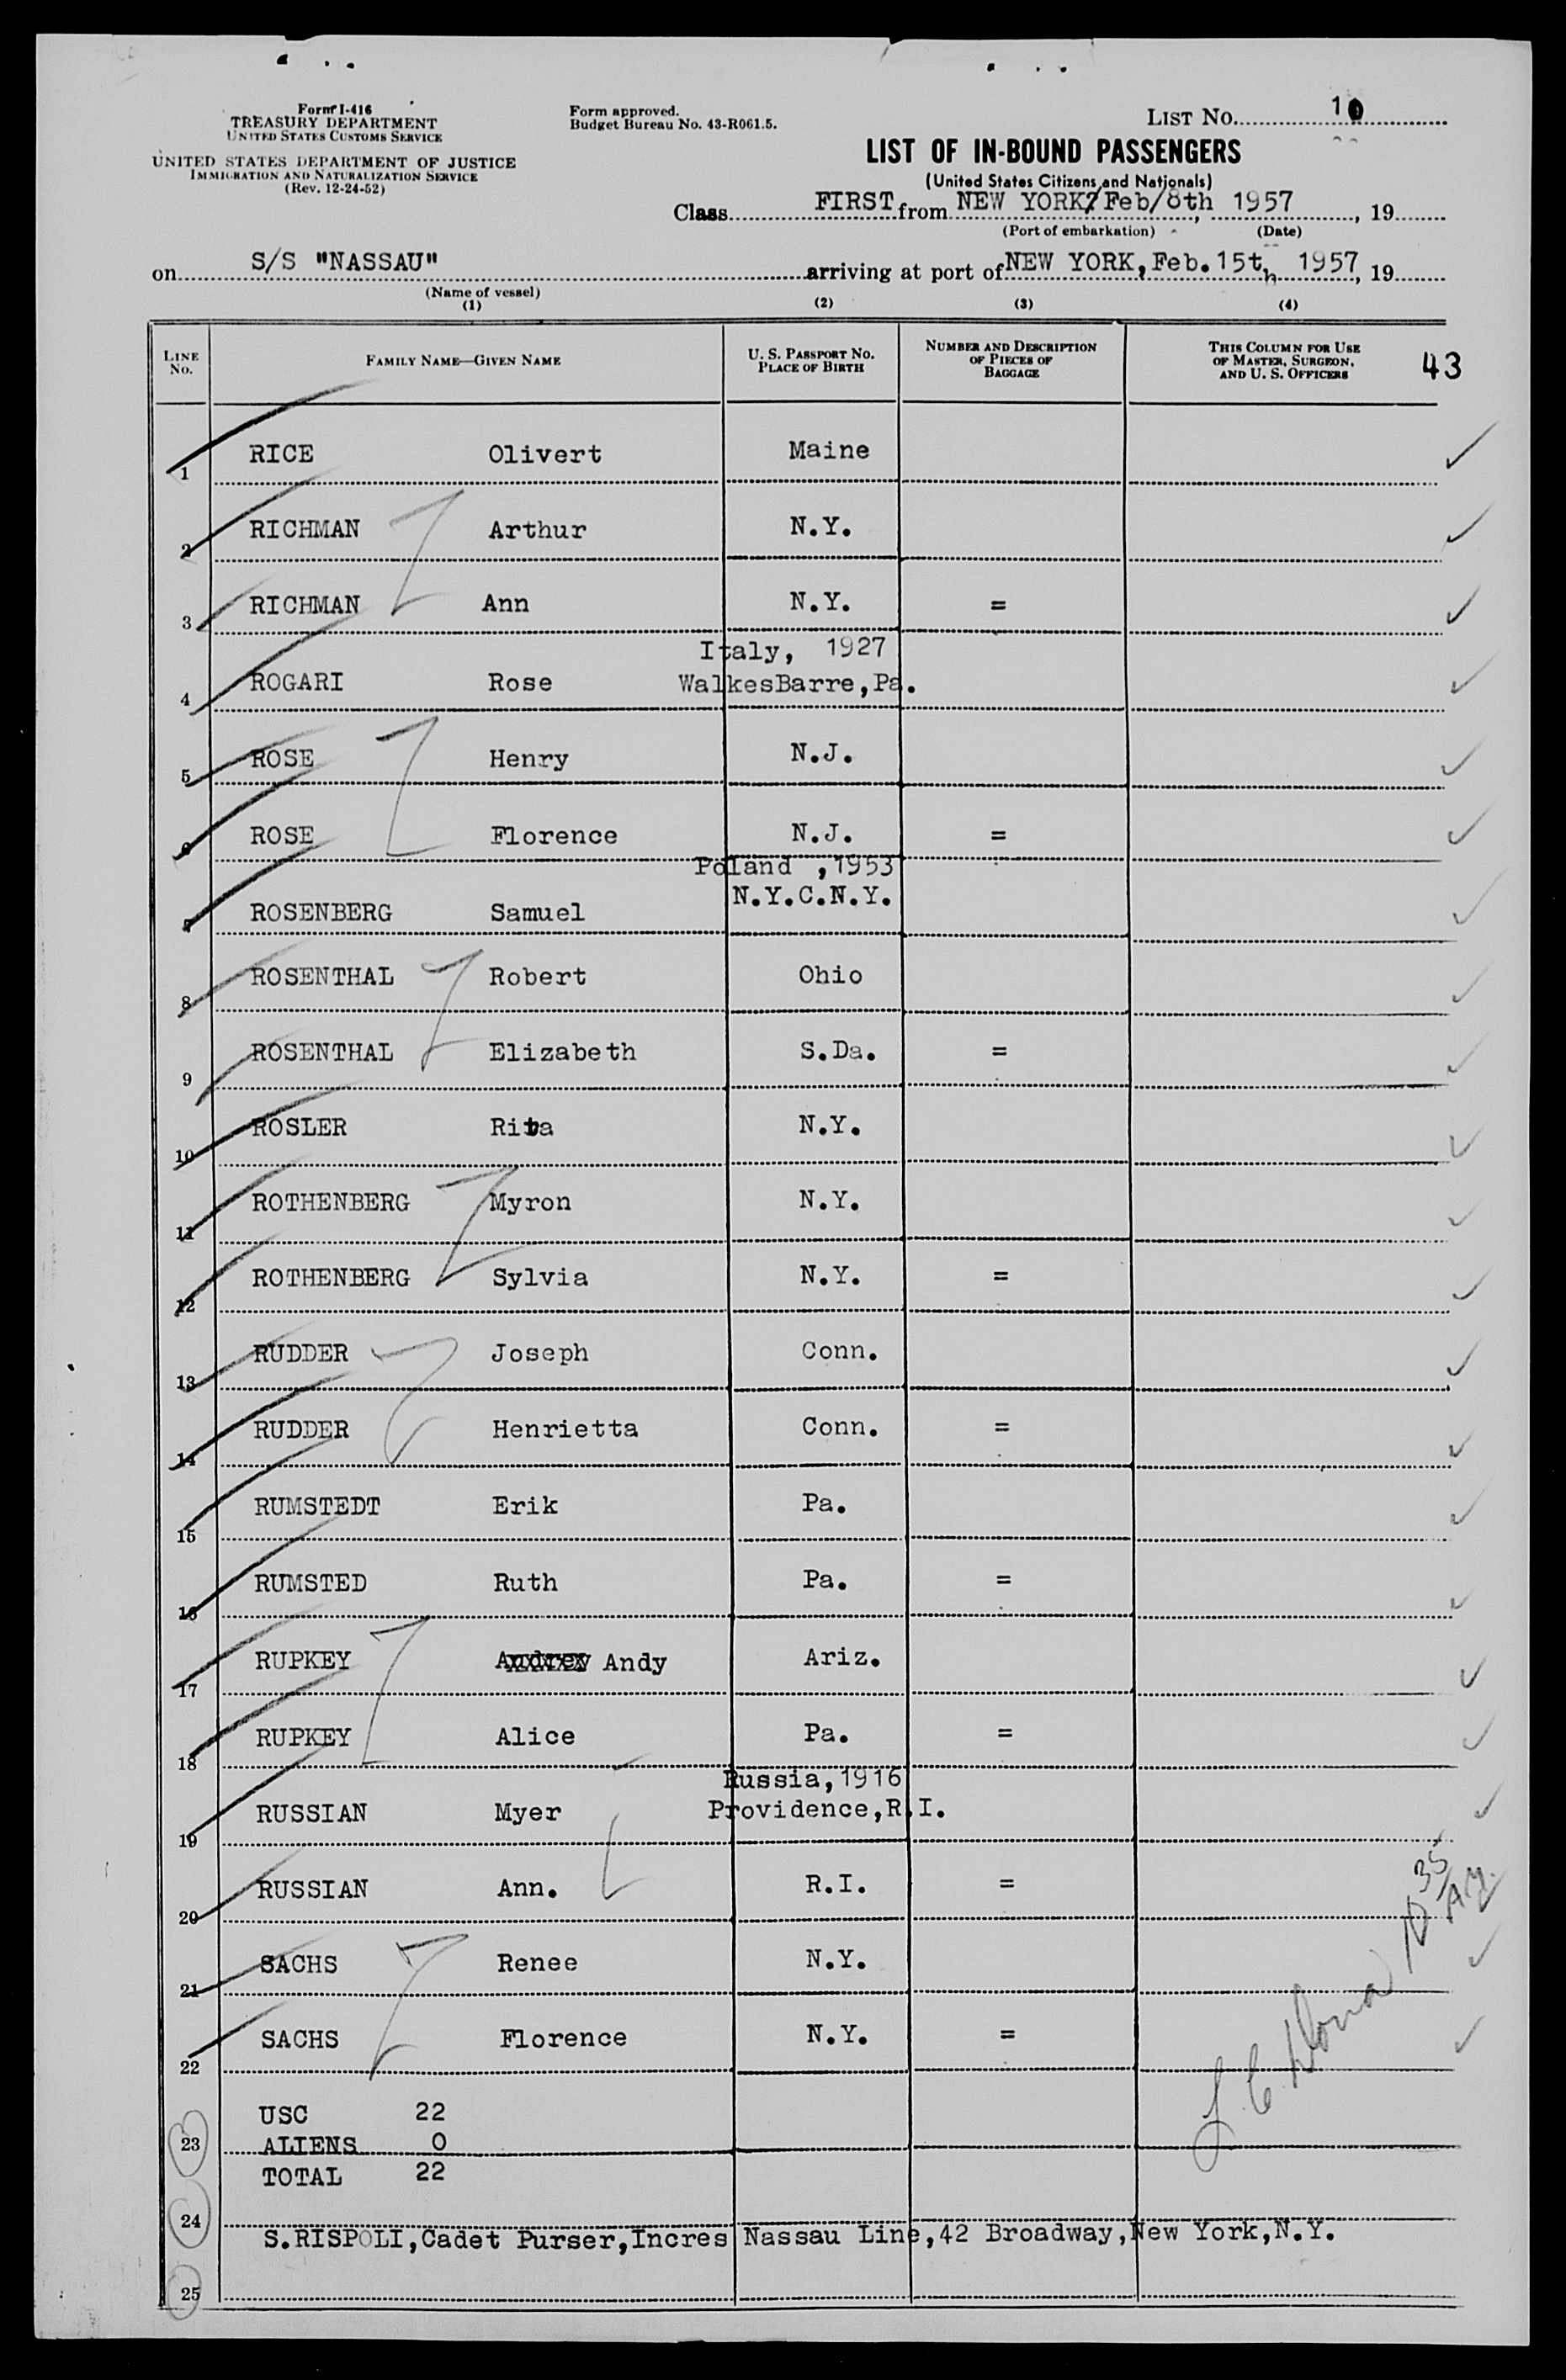 Form I-416
TREASURY DEPARTMENT
UNITED STATES CUSTOMS SERVICE
UNITED STATES DEPARTMENT OF JUSTICE
IMMIGRATION AND NATURALIZATION SERVICE
(Rev. 12-24-52)
Form approved.
Budget Bureau No. 43-R061.5.
LIST No. 10
LIST OF IN-BOUND PASSENGERS
(United States Citizens and Nationals)
Class FIRST from NEW YORK, Feb/8th 1957, 19
(Port of embarkation) (Date)
on S/S "NASSAU" arriving at port of NEW YORK, Feb. 15th 1957, 19
(Name of vessel)
(1) (2) (3) (4)
LINE No. FAMILY NAME—GIVEN NAME U. S. PASSPORT No. PLACE OF BIRTH NUMBER AND DESCRIPTION OF PIECES OF BAGGAGE THIS COLUMN FOR USE OF MASTER, SURGEON, AND U. S. OFFICERS 43
1 RICE Olivert Maine
2 RICHMAN Arthur N.Y.
3 RICHMAN Ann N.Y. =
Italy, 1927
4 ROGARI Rose WalkesBarre,Pa.
5 ROSE Henry N.J.
6 ROSE Florence N.J. =
Poland ,1953
N.Y.C.N.Y.
7 ROSENBERG Samuel
8 ROSENTHAL Robert Ohio
9 ROSENTHAL Elizabeth S.Da. =
10 ROSLER Rita N.Y.
11 ROTHENBERG Myron N.Y.
12 ROTHENBERG Sylvia N.Y. =
13 RUDDER Joseph Conn.
14 RUDDER Henrietta Conn. =
15 RUMSTEDT Erik Pa.
16 RUMSTED Ruth Pa. =
17 RUPKEY Andy Ariz.
18 RUPKEY Alice Pa. =
Russia,1916
19 RUSSIAN Myer Providence,R.I.
20 RUSSIAN Ann. R.I. =
10 35 A.M.
21 SACHS Renee N.Y.
22 SACHS Florence N.Y. =
USC 22
23 ALIENS 0
TOTAL 22
24
S.RISPOLI,Cadet Purser,Incres Nassau Line,42 Broadway,New York,N.Y.
25